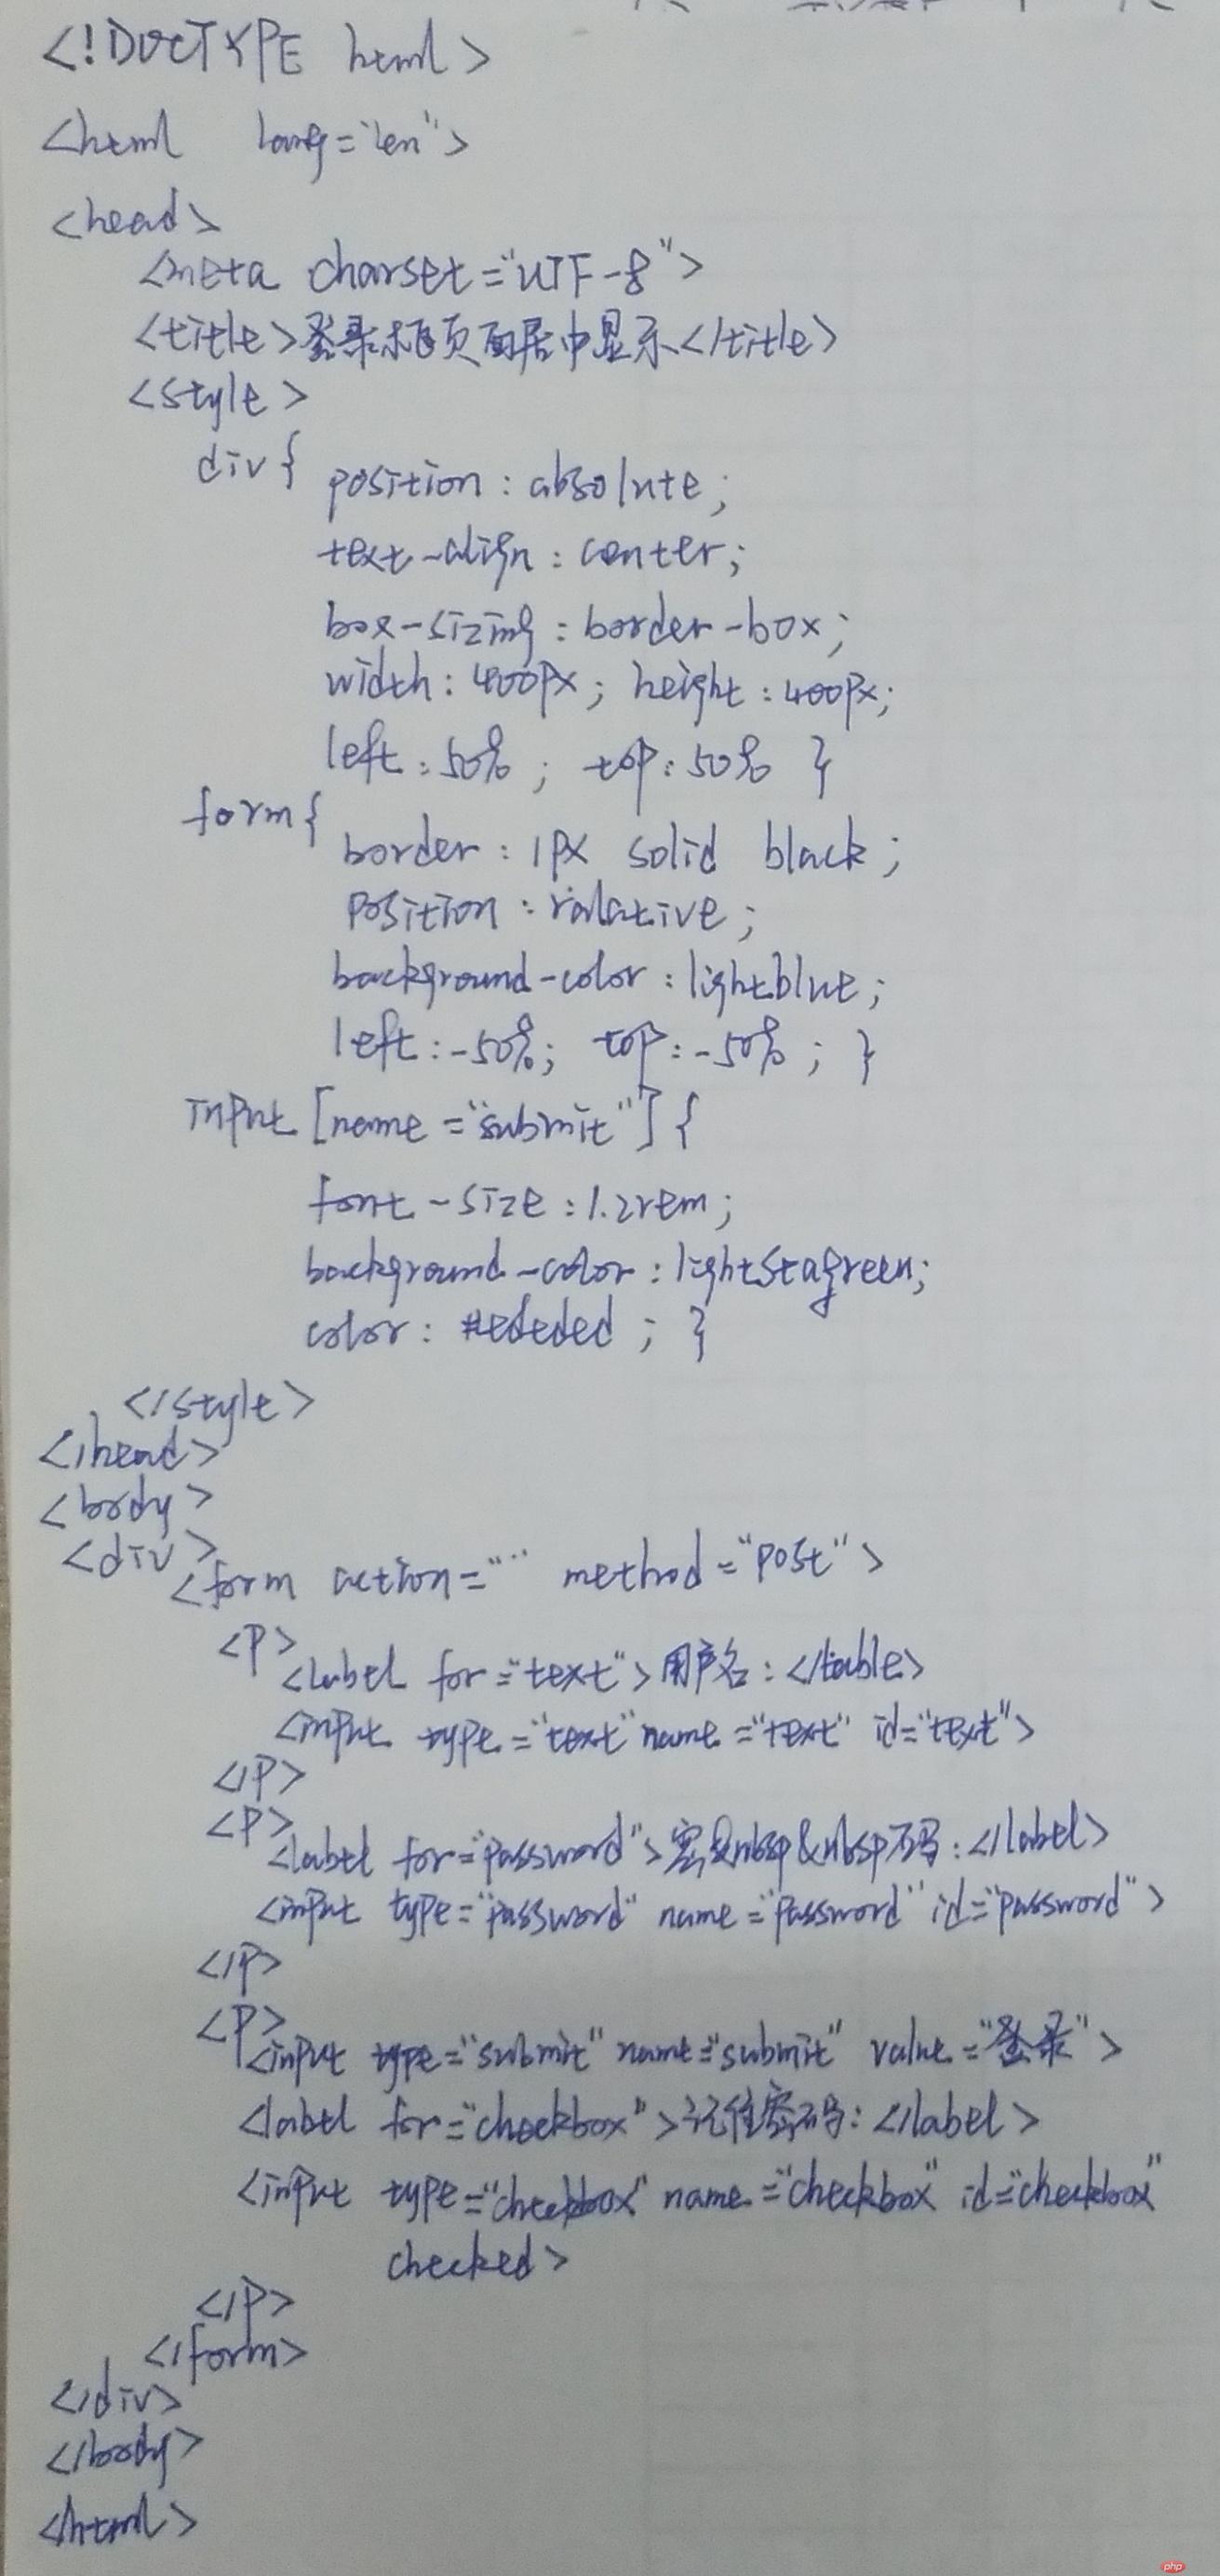 <!DOCTYPE html>
<html lang="en">
<head>
<meta charset="UTF-8">
<title>登录框页面居中显示</title>
<style>
div{ position:absolute;
text-align:center;
box-sizing:border-box;
width:400px; height:400px;
left:50%; top:50% }
form{ border:1px solid black;
position:ralative;
background-color:lightblue;
left:-50%; top:-50%; }
input[name="submit"]{
font-size:1.2rem;
background-color:lightstagreen;
color:#ededed; }
</style>
</head>
<body>
<div>
<form action="" method="post">
<p>
<label for="text">用户名:</table>
<input type="text" name="text" id="text">
</p>
<p>
<label for="password">密&nbsp&nbsp码:</label>
<input type="password" name="password" id="password">
</p>
<p>
<input type="submit" name="submit" value="登录">
<label for="checkbox">记住密码:</label>
<input type="checkbox" name="checkbox" id="checkbox"
checked>
</p>
</form>
</div>
</body>
</html>
php